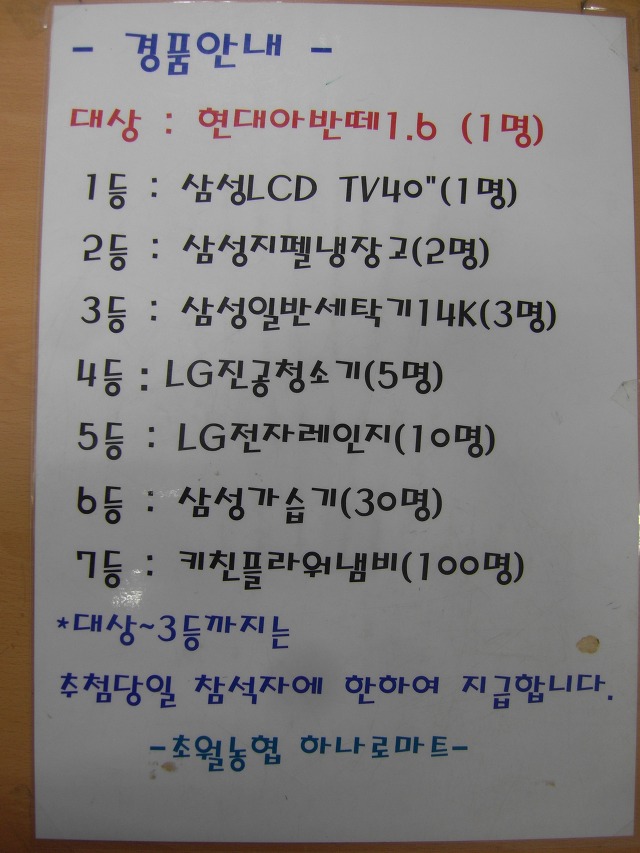 - 경품안내 -
대상 : 현대아반떼1.6 (1명)
1등 : 삼성LCD TV40"(1명)
2등 : 삼성지펠냉장고(2명)
3등 : 삼성일반세탁기14K(3명)
4등 : LG진공청소기(5명)
5등 : LG전자레인지(10명)
6등 : 삼성가습기(30명)
7등 : 키친플라워냄비(100명)
*대상~3등까지는
추첨당일 참석자에 한하여 지급합니다.
-초월농협 하나로마트-